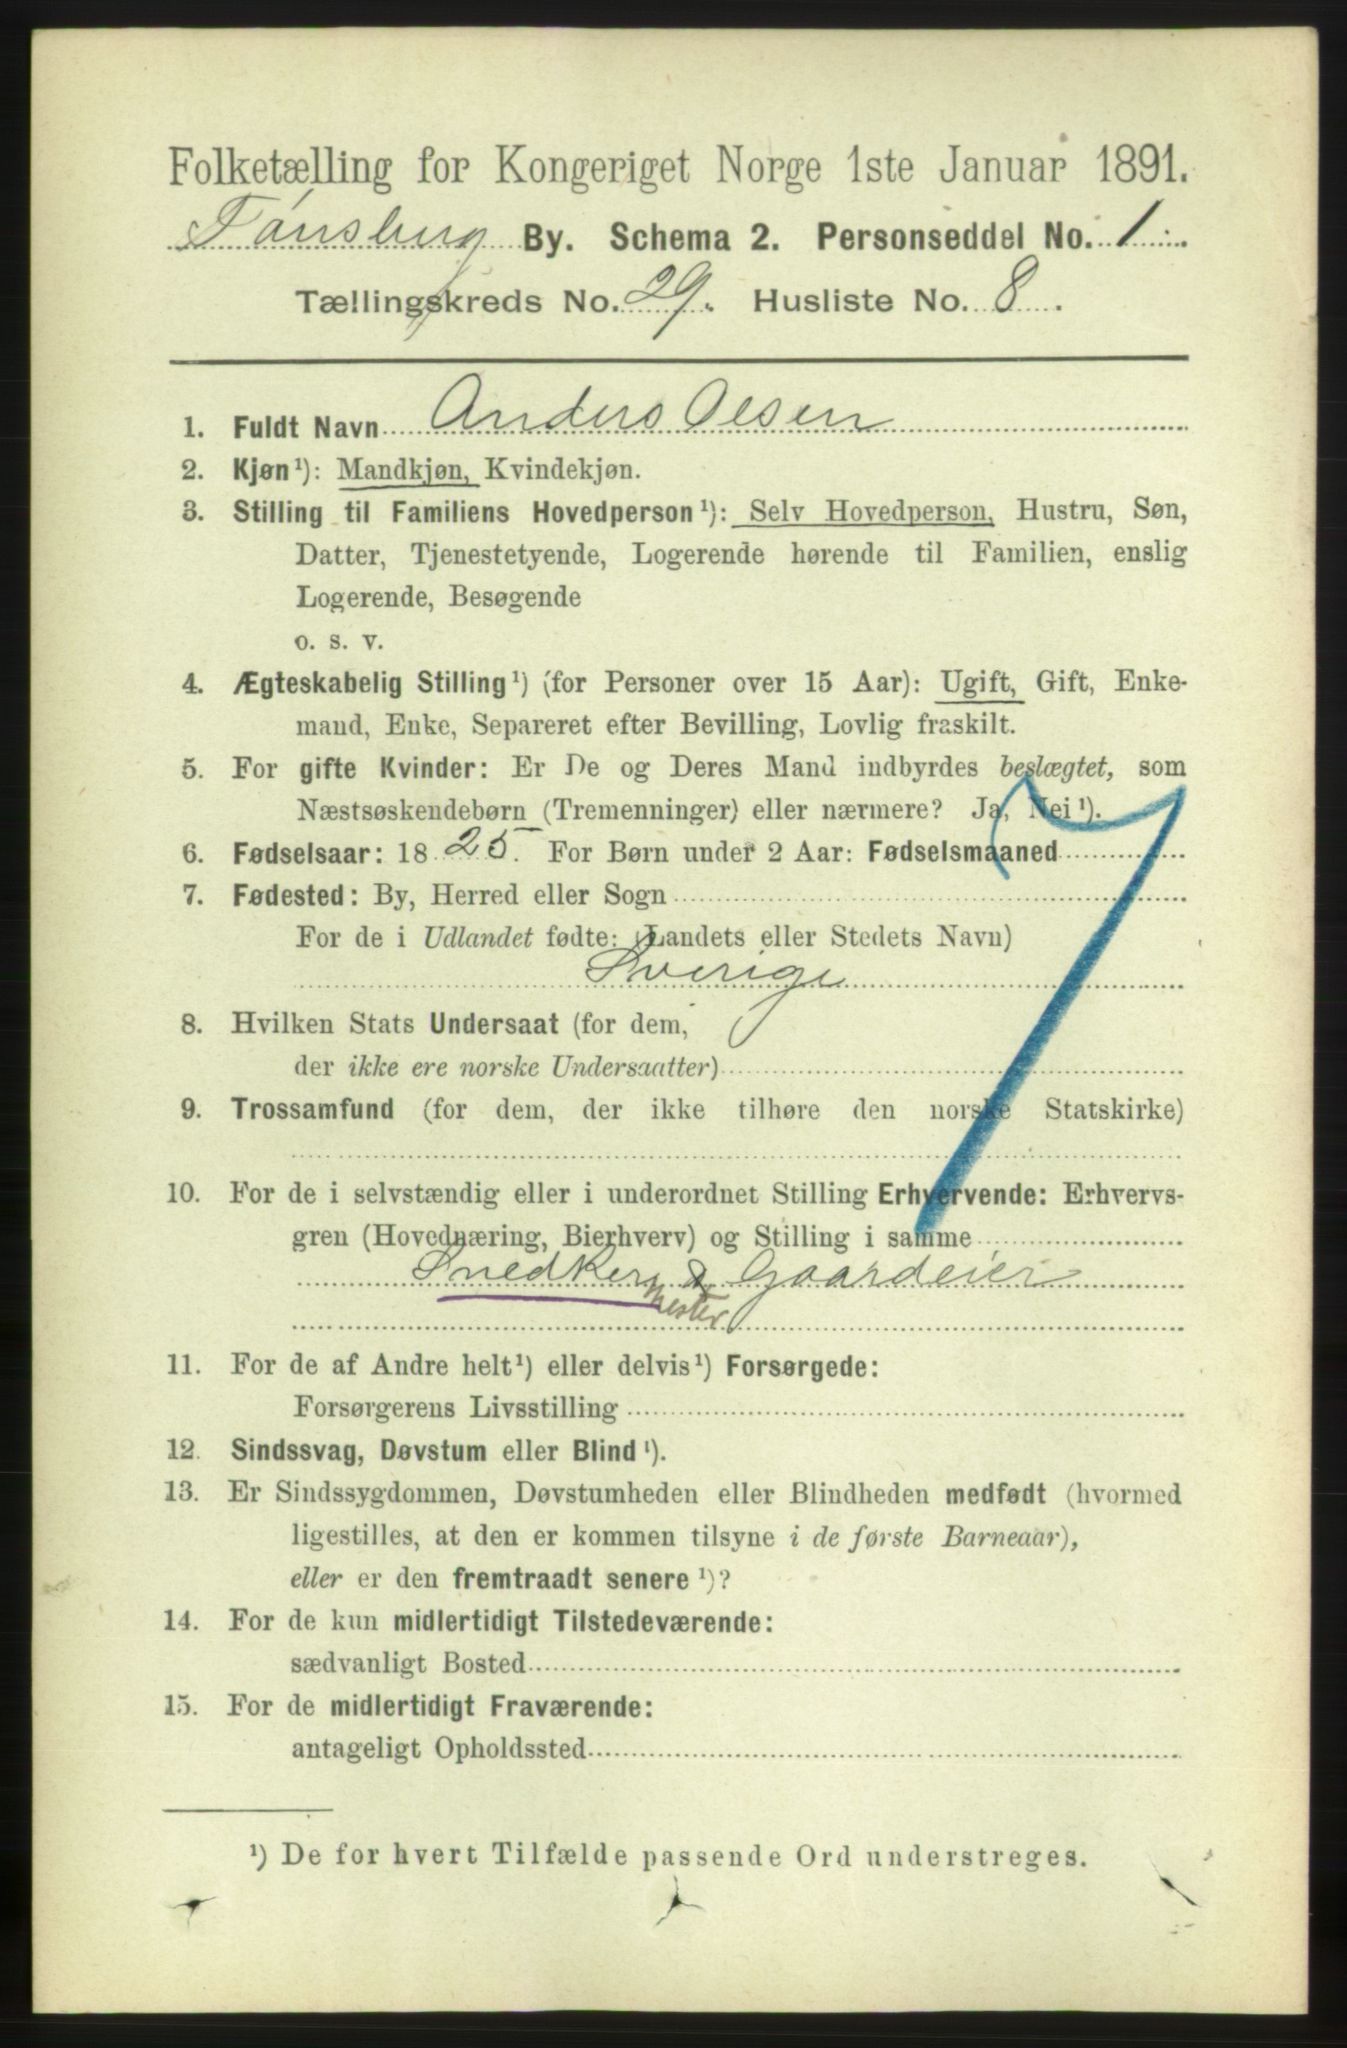 Folketælling for Kongeriget Norge 1ste Januar 1891.
Tønsberg By. Schema 2. Personseddel No. 1.
Tællingskreds No. 29. Husliste No. 8.
1. Fuldt Navn Anders Olsen
2. Kjøn¹): Mandkjøn, Kvindekjøn.
3. Stilling til Familiens Hovedperson¹): Selv Hovedperson, Hustru, Søn,
Datter, Tjenestetyende, Logerende hørende til Familien, enslig
Logerende, Besøgende
o. s. v.
4. Ægteskabelig Stilling¹) (for Personer over 15 Aar): Ugift, Gift, Enke-
mand, Enke, Separeret efter Bevilling, Lovlig fraskilt.
5. For gifte Kvinder: Er De og Deres Mand indbyrdes beslægtet, som
Næstsøskendebørn (Tremenninger) eller nærmere? Ja, Nei¹).
6. Fødselsaar: 1825. For Børn under 2 Aar: Fødselsmaaned
7. Fødested: By, Herred eller Sogn
For de i Udlandet fødte: (Landets eller Stedets Navn)
Sverige
8. Hvilken Stats Undersaat (for dem,
der ikke ere norske Undersaatter)
9. Trossamfund (for dem, der ikke tilhøre den norske Statskirke)
10. For de i selvstændig eller i underordnet Stilling Erhvervende: Erhvervs-
gren (Hovednæring, Bierhverv) og Stilling i samme
Snedker & Gaardeier
mester
11. For de af Andre helt¹) eller delvis¹) Forsørgede:
Forsørgerens Livsstilling
12. Sindssvag, Døvstum eller Blind¹).
13. Er Sindssygdommen, Døvstumheden eller Blindheden medfødt (hvormed
ligestilles, at den er kommen tilsyne i de første Barneaar),
eller er den fremtraadt senere¹)?
14. For de kun midlertidigt Tilstedeværende:
sædvanligt Bosted
15. For de midlertidigt Fraværende:
antageligt Opholdssted
¹) De for hvert Tilfælde passende Ord understreges.